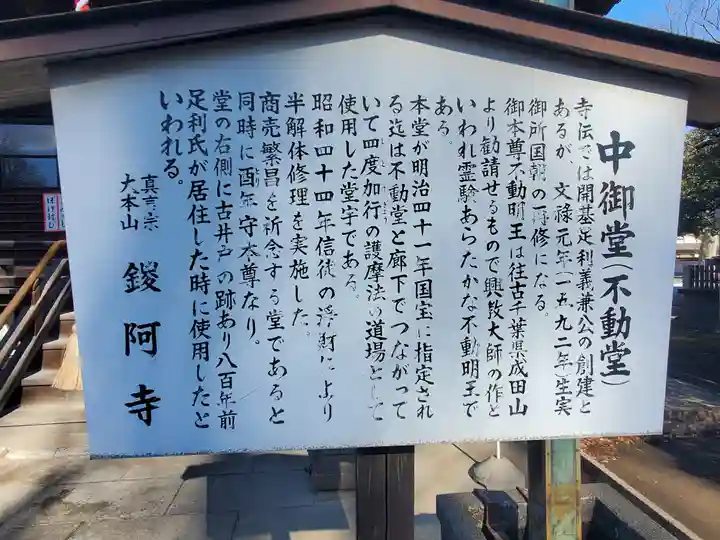 中御堂(不動堂)
寺伝では開基足利義兼公の創建と
あるが、文禄元年(一五九二年)生実
御所国朝の再修になる。
御本尊不動明王は往古千葉県成田山
より勧請せるもので興教大師の作と
いわれ霊験あらたかな不動明王で
ある。
本堂が明治四十一年国宝に指定され
る迄は不動堂と廊下でつながって
いて四度加行の護摩法の道場として
使用した堂宇である。
昭和四十四年信徒の浄財により
半解体修理を実施した。
商売繁昌を祈念する堂であると
同時に酉年守本尊なり。
堂の右側に古井戸の跡あり八百年前
足利氏が居住した時に使用したと
いわれる。
真言宗
大本山
鑁阿寺